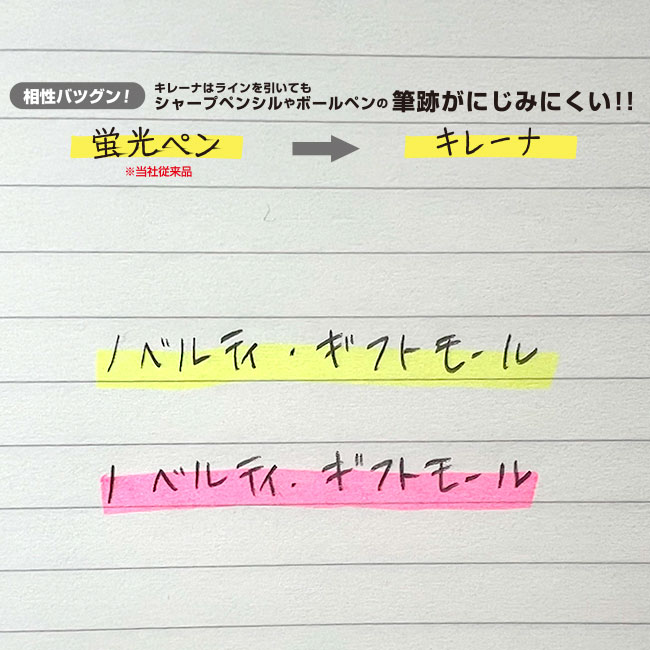 相性バツグン!
キレーナはラインを引いても
シャープペンシルやボールペンの筆跡がにじみにくい!!
蛍光ペン
キレーナ
※当社従来品
ノベルティ・ギフトモール
ノベルティ・ギフトモール